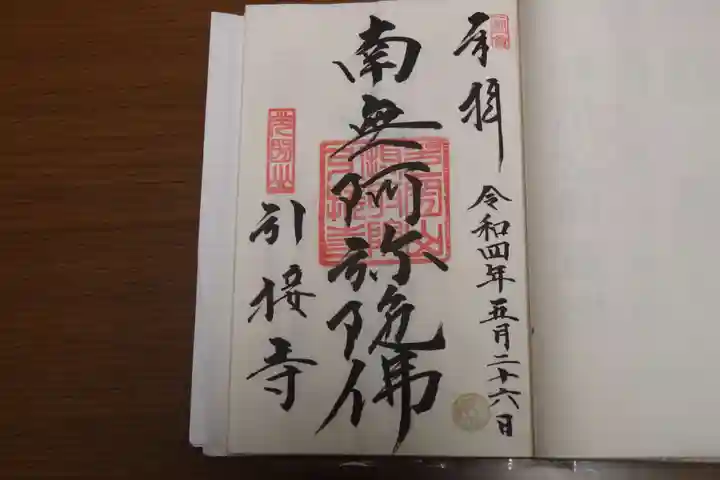 奉拝
令和四年五月二十六日
南無阿弥陀佛
光明山
引接寺